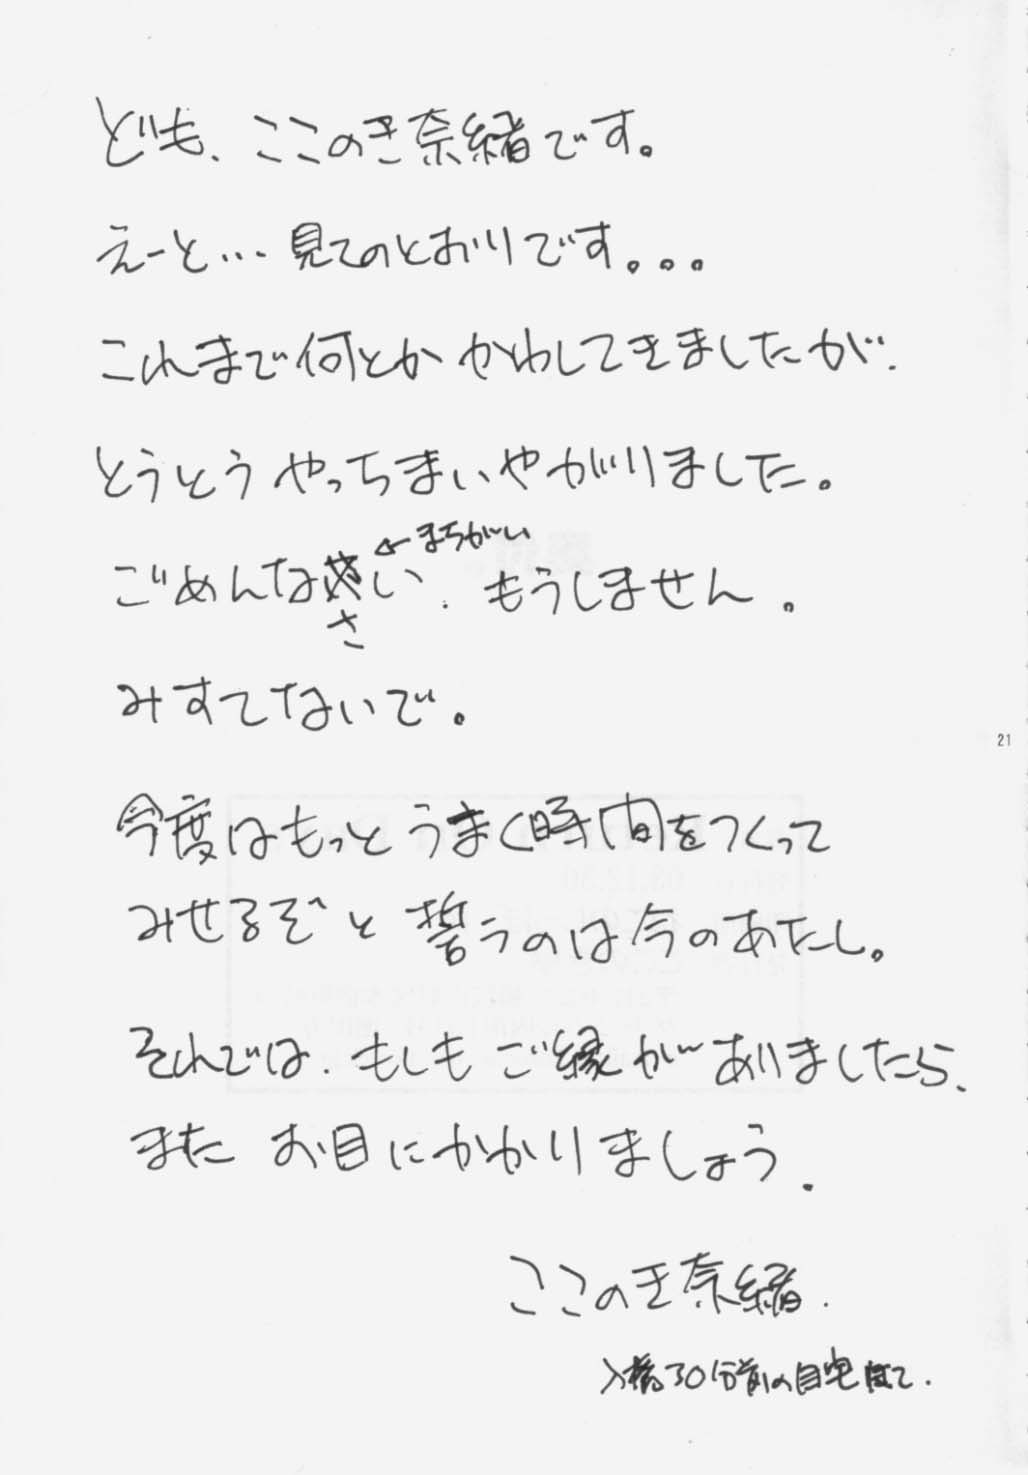 ども、ここのき奈緒です。
えーと…見てのとおりです。。。
これまで何とかかわしてきましたが、
とうとうやっちまいやがりました。
←まちがい
ごめんなさい、もうしません。
みすてないで。
21
今度はもっとうまく時間をつくって
みせるぞと誓うのは今のあたし。
それでは、もしもご縁がありましたら、
またお目にかかりましょう。
ここのき奈緒.
入稿30分前の自宅にて.